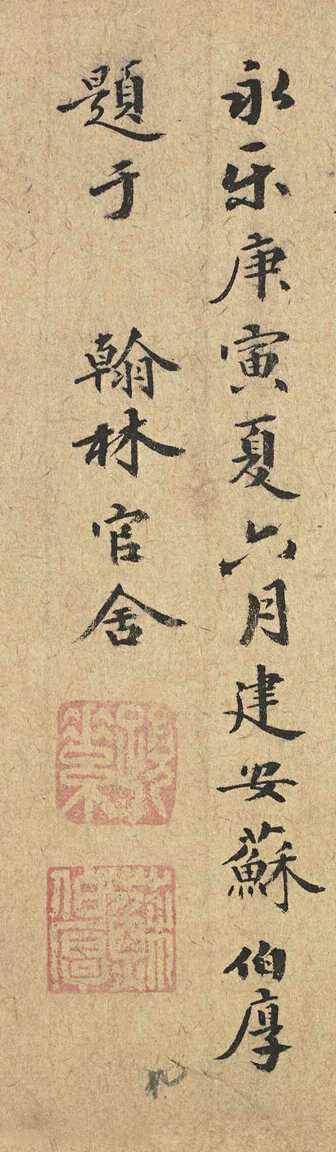 永乐庚寅夏六月建安蘇伯厚
題于 翰林官舍
蘇伯厚